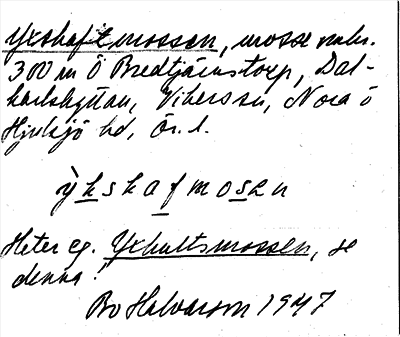 Yxshaftmossen, mosse
300 m Ö Bredtjärnstorp, Dal-
karlshyttan, Vikers sn, Nora o
Hjulsjö hd, Ör. l.
ỳkshafmosen
Heter eg. Yxhultsmossen, se
denna!
Bo Halvarson 1947